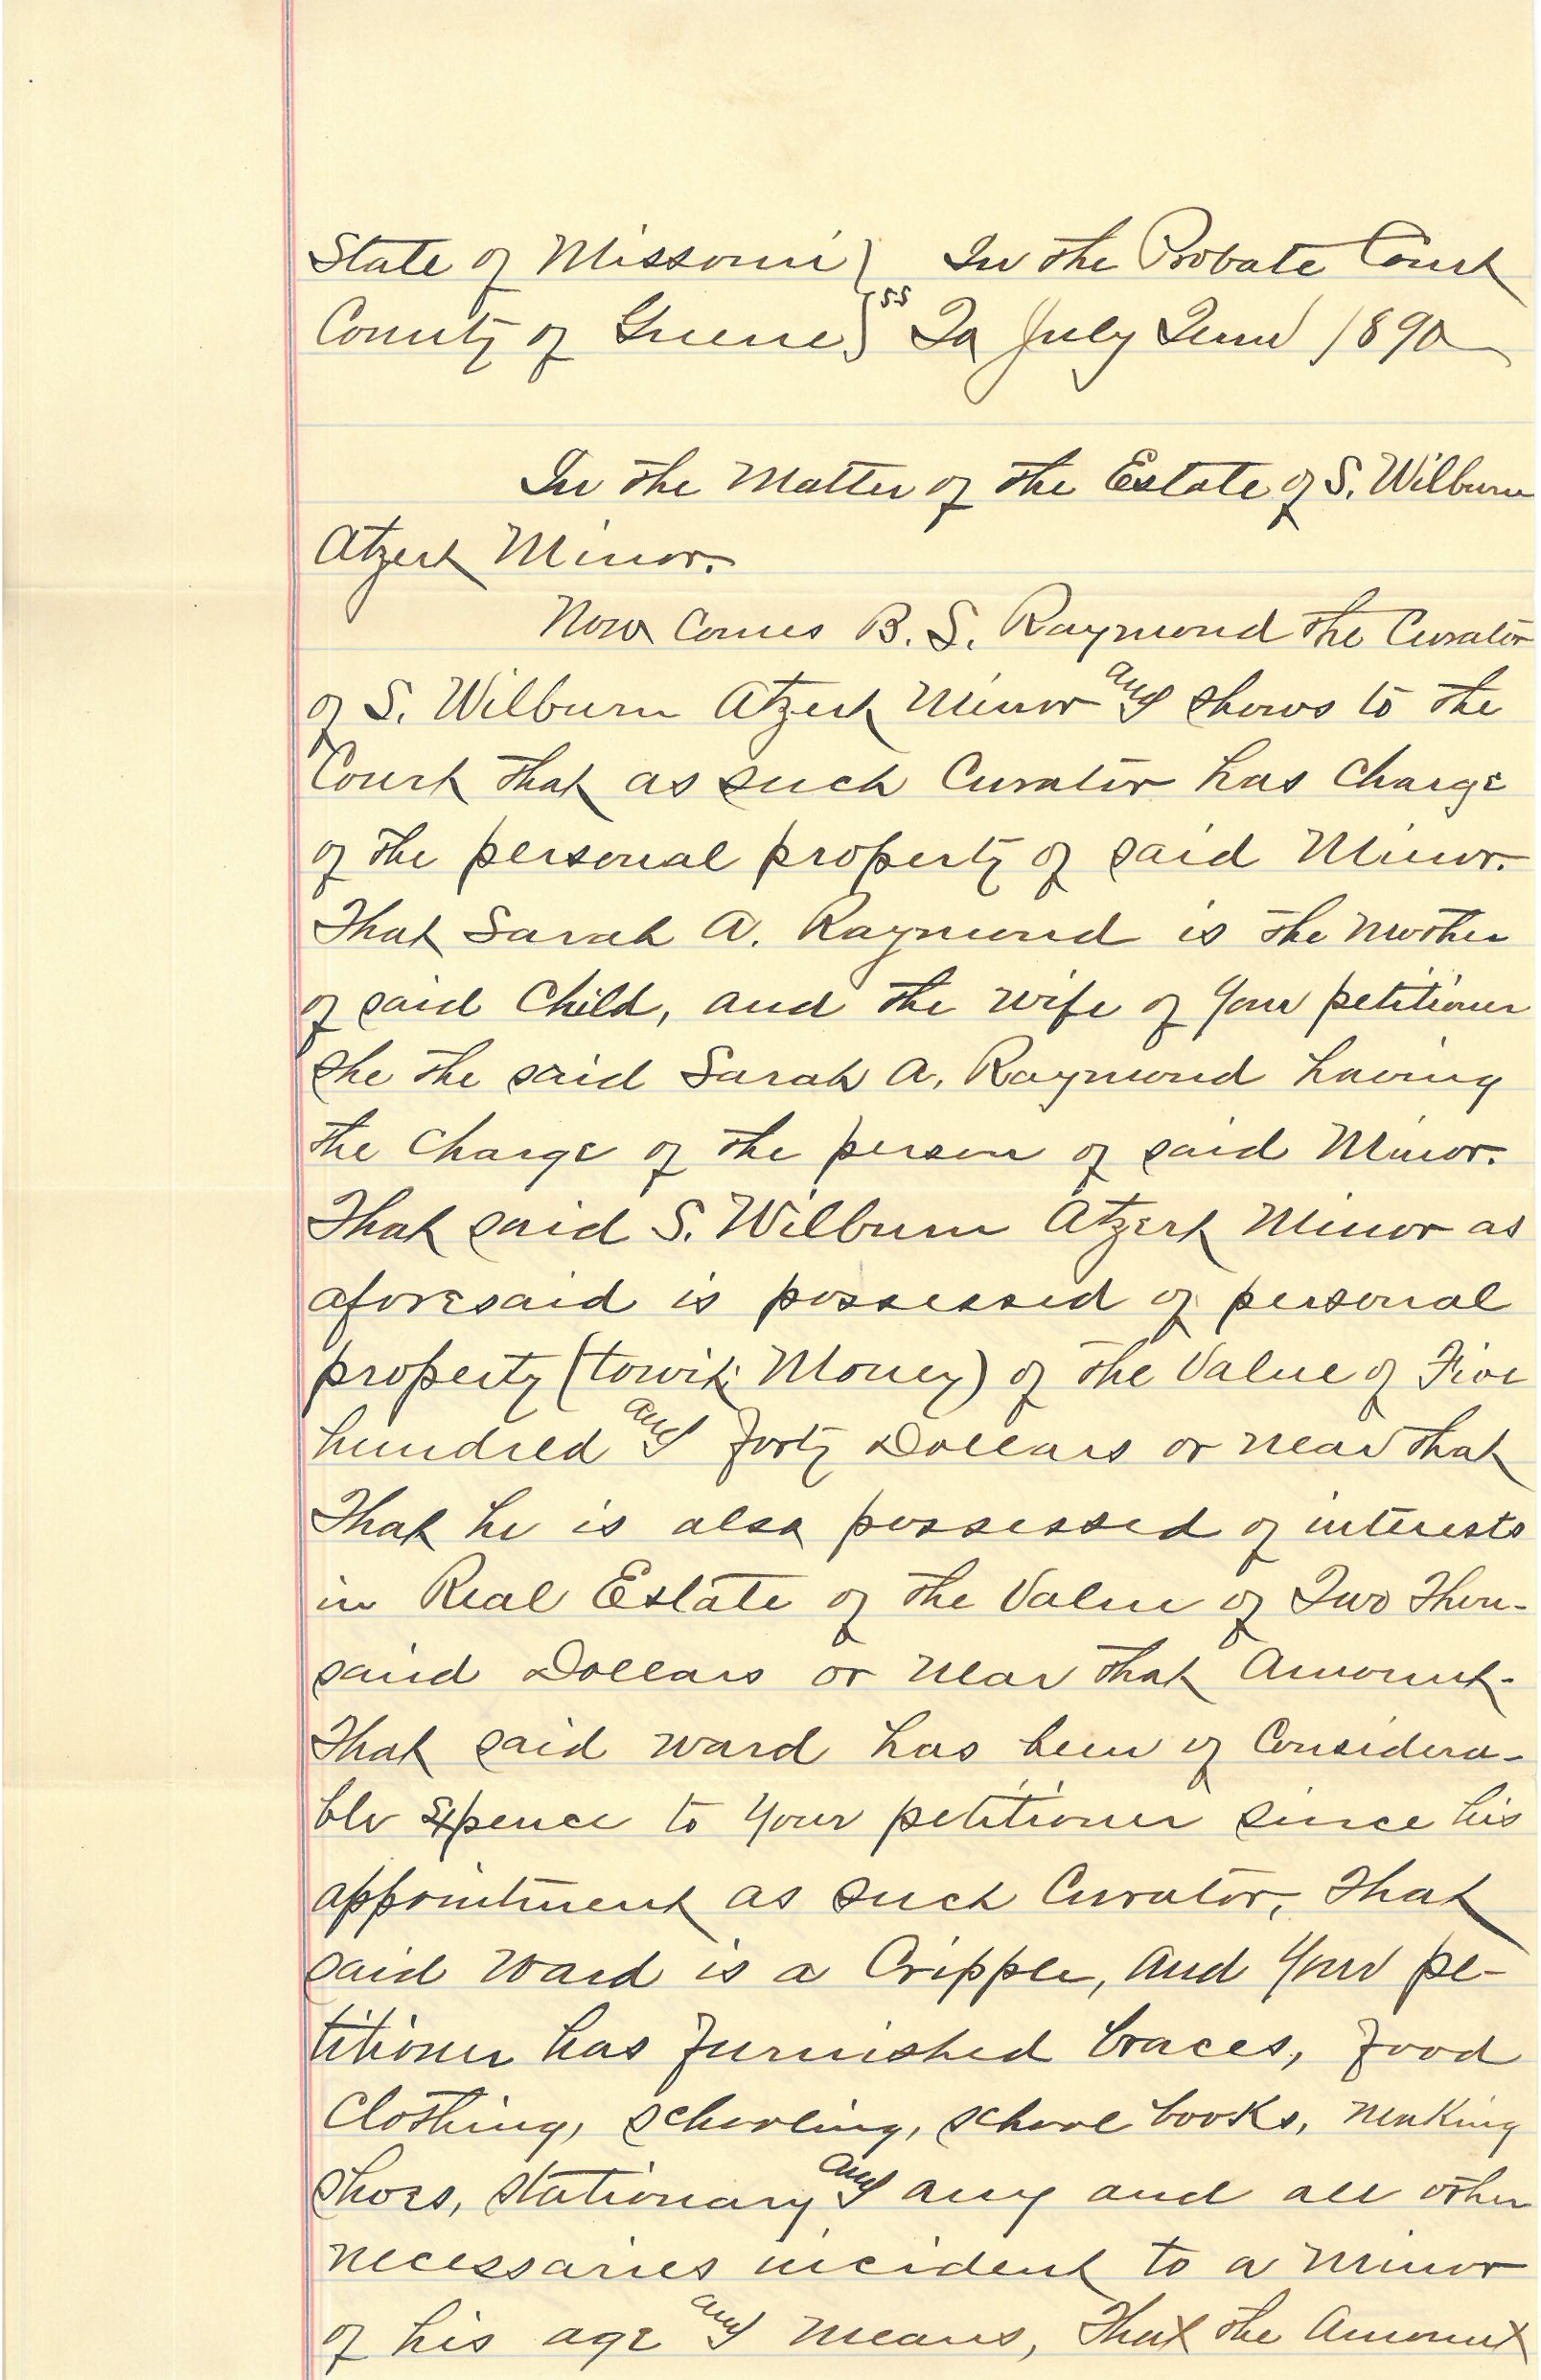 State of Missouri } In the Probate Court
County of Greene } ss To July Term 1890
In the Matter of the Estate of S. Wilburn
Atzert Minor.
Now Comes B. S. Raymond the Curator
of S. Wilburn Atzert Minor and shows to the
Court that as such Curator has Charge
of the personal property of said Minor.
That Sarah A. Raymond is the Mother
of said Child, and the wife of your petitioner
she the said Sarah A. Raymond having
the Charge of the person of said Minor.
That said S. Wilburn Atzert Minor as
aforesaid is possessed of personal
property (towit: Money) of the Value of Five
hundred and forty Dollars or near that
That he is also possessed of interests
in Real Estate of the Value of Two Thou-
sand Dollars or near that Amount.
That said ward has been of Considera-
ble Expence to your petitioner since his
appointment as such Curator, that
said ward is a Cripple, and your pe-
titioner has furnished braces, food
Clothing, schooling, school books, making
shoes, stationary and any and all other
necessaries incident to a Minor
of his age and means, That the Amount